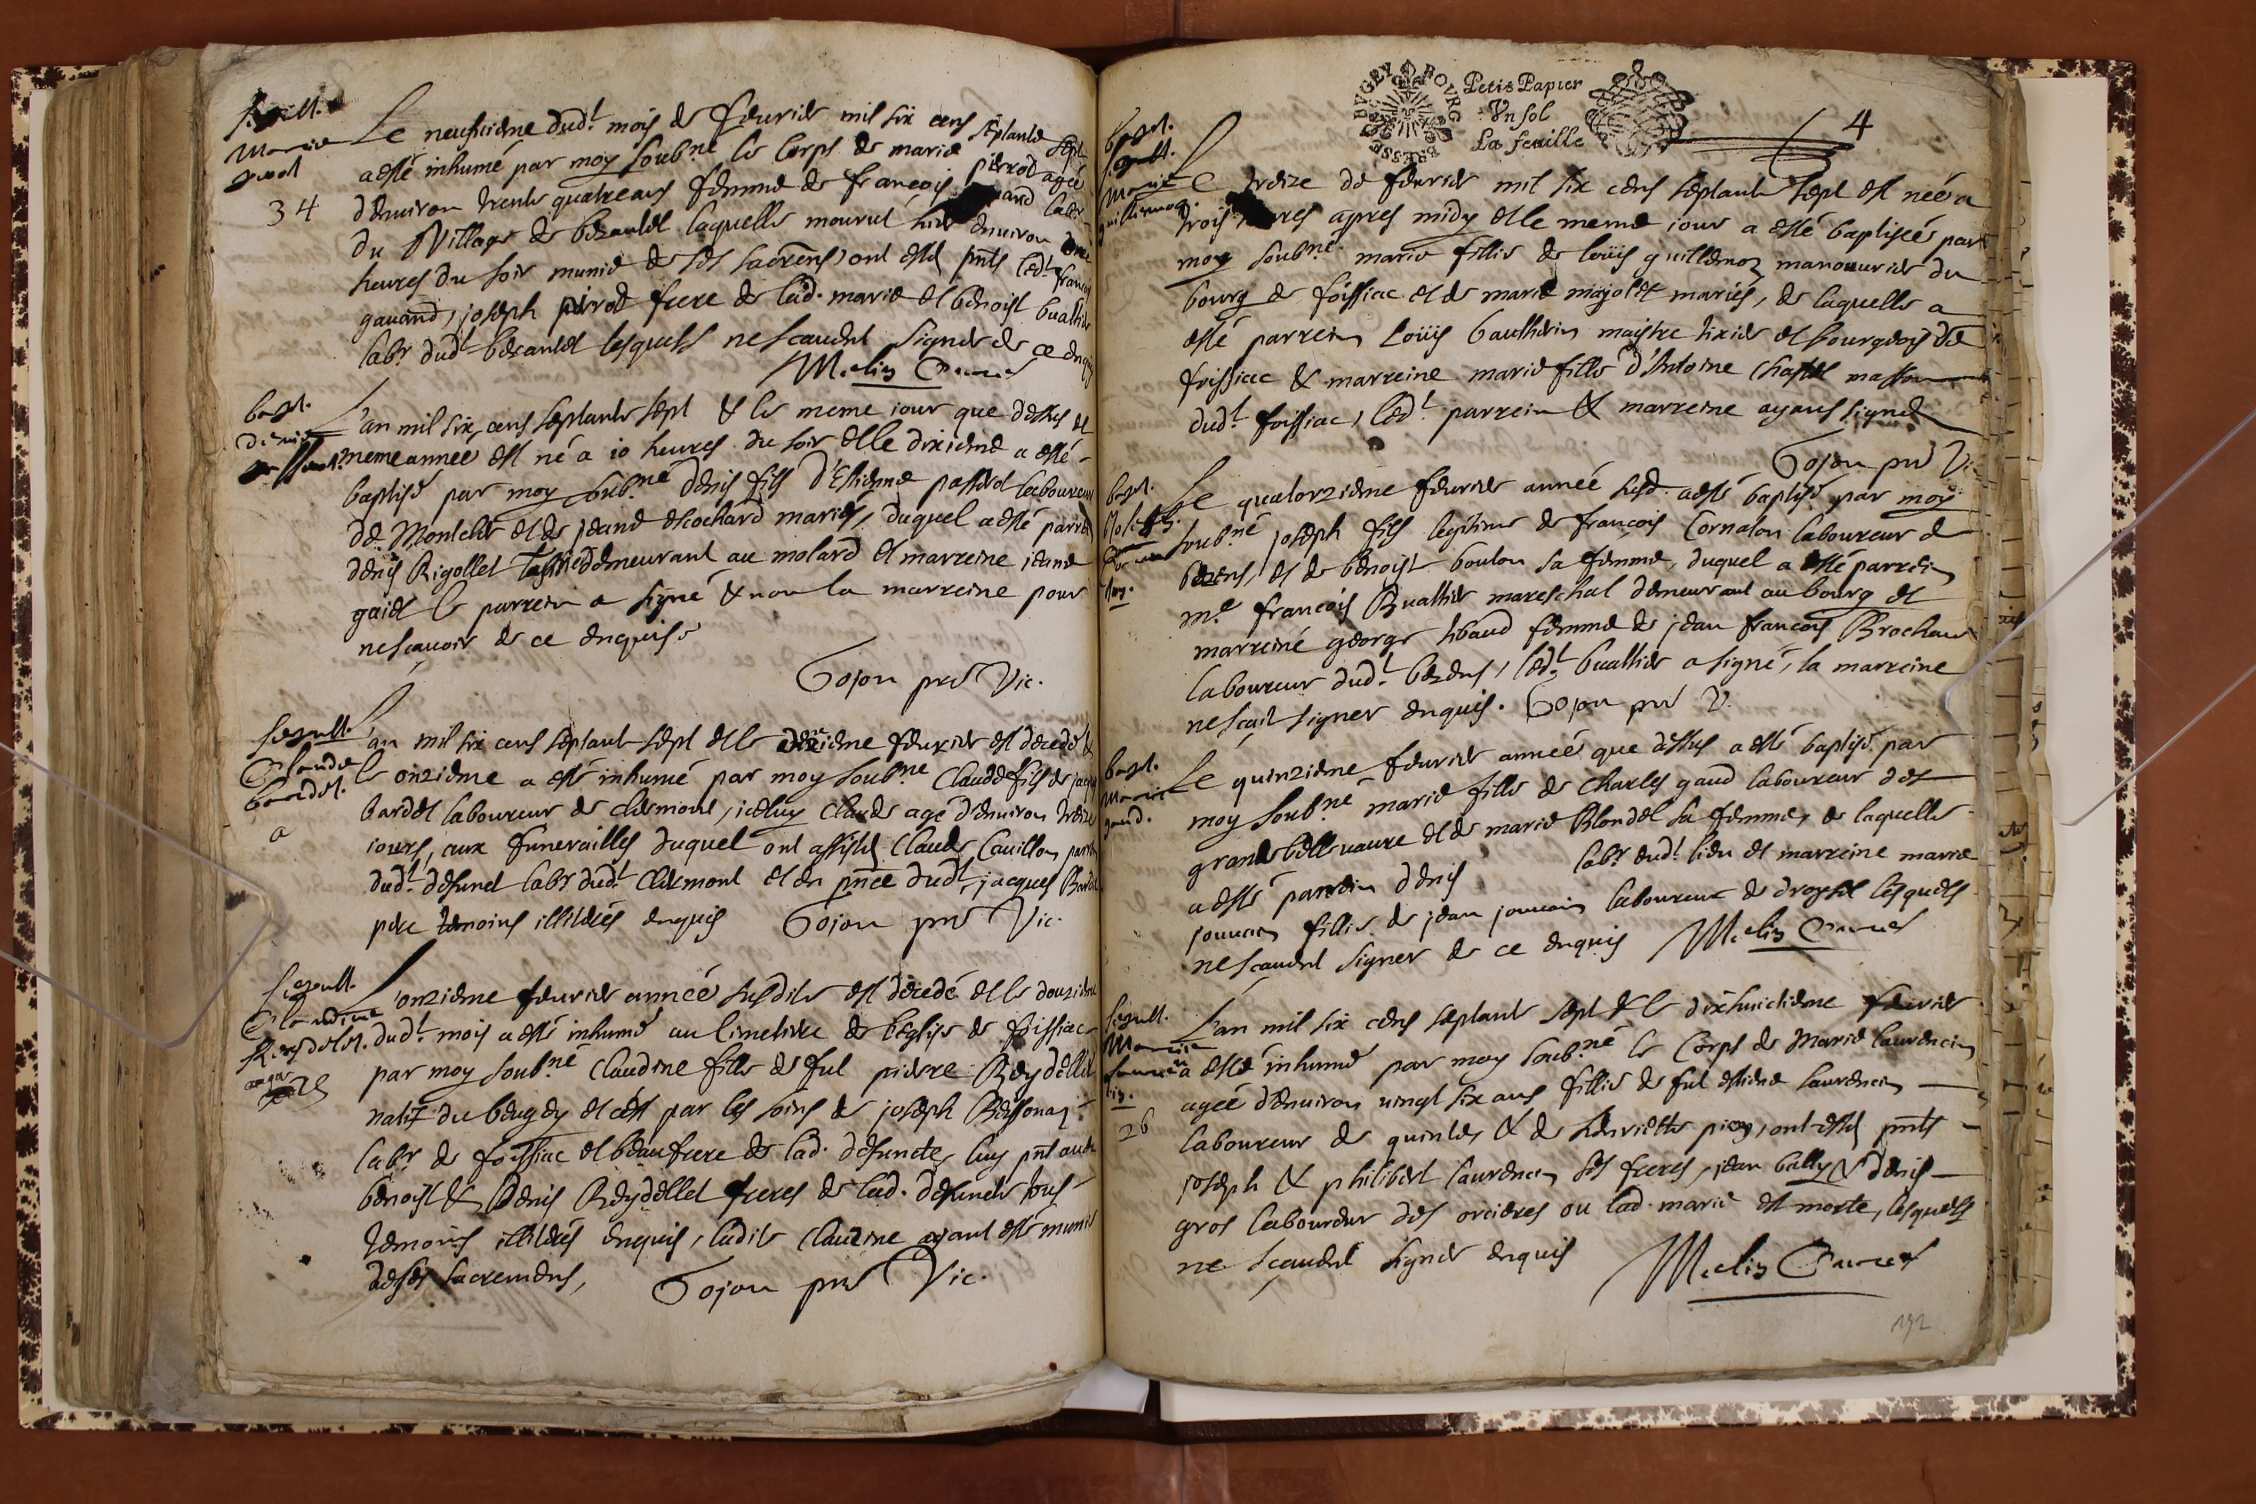 Sepult.
Marie
pirod
34
Le neufvieme dud.t mois de feuvrier mil six cens septante sept
a esté inhumé par moy soub.né le Corps de marie pierrod agée
d'enuiron trente quatre ans femme de francois gauand labr
du Village de bezantet laquelle mourut hier enuiron onze
heures du soir munie de ses sacrens, ont estés pnts led.t francois
gauand, joseph pirod frere de lad. marie et benoist buathier
labr dud.t bezantet lesquels ne scauent signer de ce enquis
Merlin Curé
bapt.
denis
passerot.
L'an mil six cens septante sept & le meme iour que dessus et
meme année est né a 10 heures du soir et le dixieme a esté
baptisé par moy soub.né denis fils d'Estienne passerot laboureur
de Montclet et de jeane escochard mariés, duquel a esté parrein
denis Rigollet demeurant au molard et marreine ieane
gaiet le parrein a signé & non la marreine pour
ne scauoir de ce enquise
Gojon pre Vic.
Sepult.
Claude
bardet.
a
L'an mil six cens septante sept et le dixieme feuvrier est decedé &
le onzieme a esté inhumé par moy soub.né Claude fils de jacques
bardet laboureur de clesmont, iceluy Claude agé d'enuiron treize
iours, aux funerailles duquel ont assistés Claude Cauillon parrein
dud.t defunct labr dud.t clesmont et en pnce dud.t jacques Bardet
pere temoins illiterés enquis Gojon pre Vic.
Sepult.
Claudine
Reydelet.
L'onzieme feuvrier année susdite est decedé et le douzieme
dud.t mois a esté inhumé au Cimetiere de l'eglise de foissiac
par moy soub.né Claudine fille de fut pierre Reydellet
natif du beugey et c'est par les soins de joseph Bessonaz
labr de foissiac et beaufrere de lad. defuncte, luy pnt auec
benoist & Denis Reydellet freres de lad. defuncte tous
temoins illiterés enquis, ladite Claudine ayant esté munie
de ses sacremens, Gojon pre Vic.
BVGEY BOVRG BRESSE
Petis Papier
Vn sol
La feuille
4
bapt.
Marie
guillemoz.
Le treize de feuvrier mil six cens septante sept est née a
trois heures apres midy et le meme iour a esté baptisée par
moy soub.né marie fille de loüis guillemoz manouurier du
bourg de foissiac et de marie majolet mariés, de laquelle a
esté parrein Loüis Gautherin maistre tixier et bourgeois de
foissiac & marreine marie fille d'Antoine Chastel masson
dud.t foissiac, led.t parrein & marreine ayans signés
Gojon pre Vic
bapt.
Joseph
Cornaton.
Le quatorzieme feuvrier année susd. a esté baptisé par moy
soub.né joseph fils legitime de françois Cornaton laboureur de
bezens, et de benoiste bouton sa femme, duquel a esté parrein
m.e françois Buathier mareschal demeurant au bourg et
marreine george tibaud femme de jean françois Brochand
laboureur dud.t bezens, led.t buathier a signé, la marreine
ne scait signer enquis. Gojon pre V.
bapt.
Marie
gaud.
Le quinzieme feuvrier année que dessus a esté baptisé par
moy soub.né marie fille de Charles gaud laboureur des
grands bellevaure et de marie Blondel sa femme, de laquelle
a esté parrein denis labr dud.t lieu et marreine marie
jouuen fille de jean jouuen laboureur de droysel lesquels
ne scauent signer de ce enquis Merlin Curé
Sepult.
Marie
laurencin.
26
L'an mil six cens septante sept & le dixhuictieme feuvrier
a esté inhumé par moy soub.né le Corps de Marie laurencin
agée d'enuiron uingt six ans fille de fut estiene laurencin
laboureur de quintes, & de henriette picoz, ont estés pnts
joseph & philibert laurencin ses freres, jean bally & denis
gros laboureur des orcieres ou lad. marie est morte, lesquels
ne scauent signer enquis Merlin Curé
192